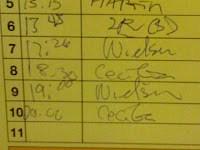 5 13.15 Martin
6 13 45 2R (3)
7 17:20 Nielsen
8 18.30 Cecilia
9 19:00 Nielsen
10 20.00 Cecilia
11